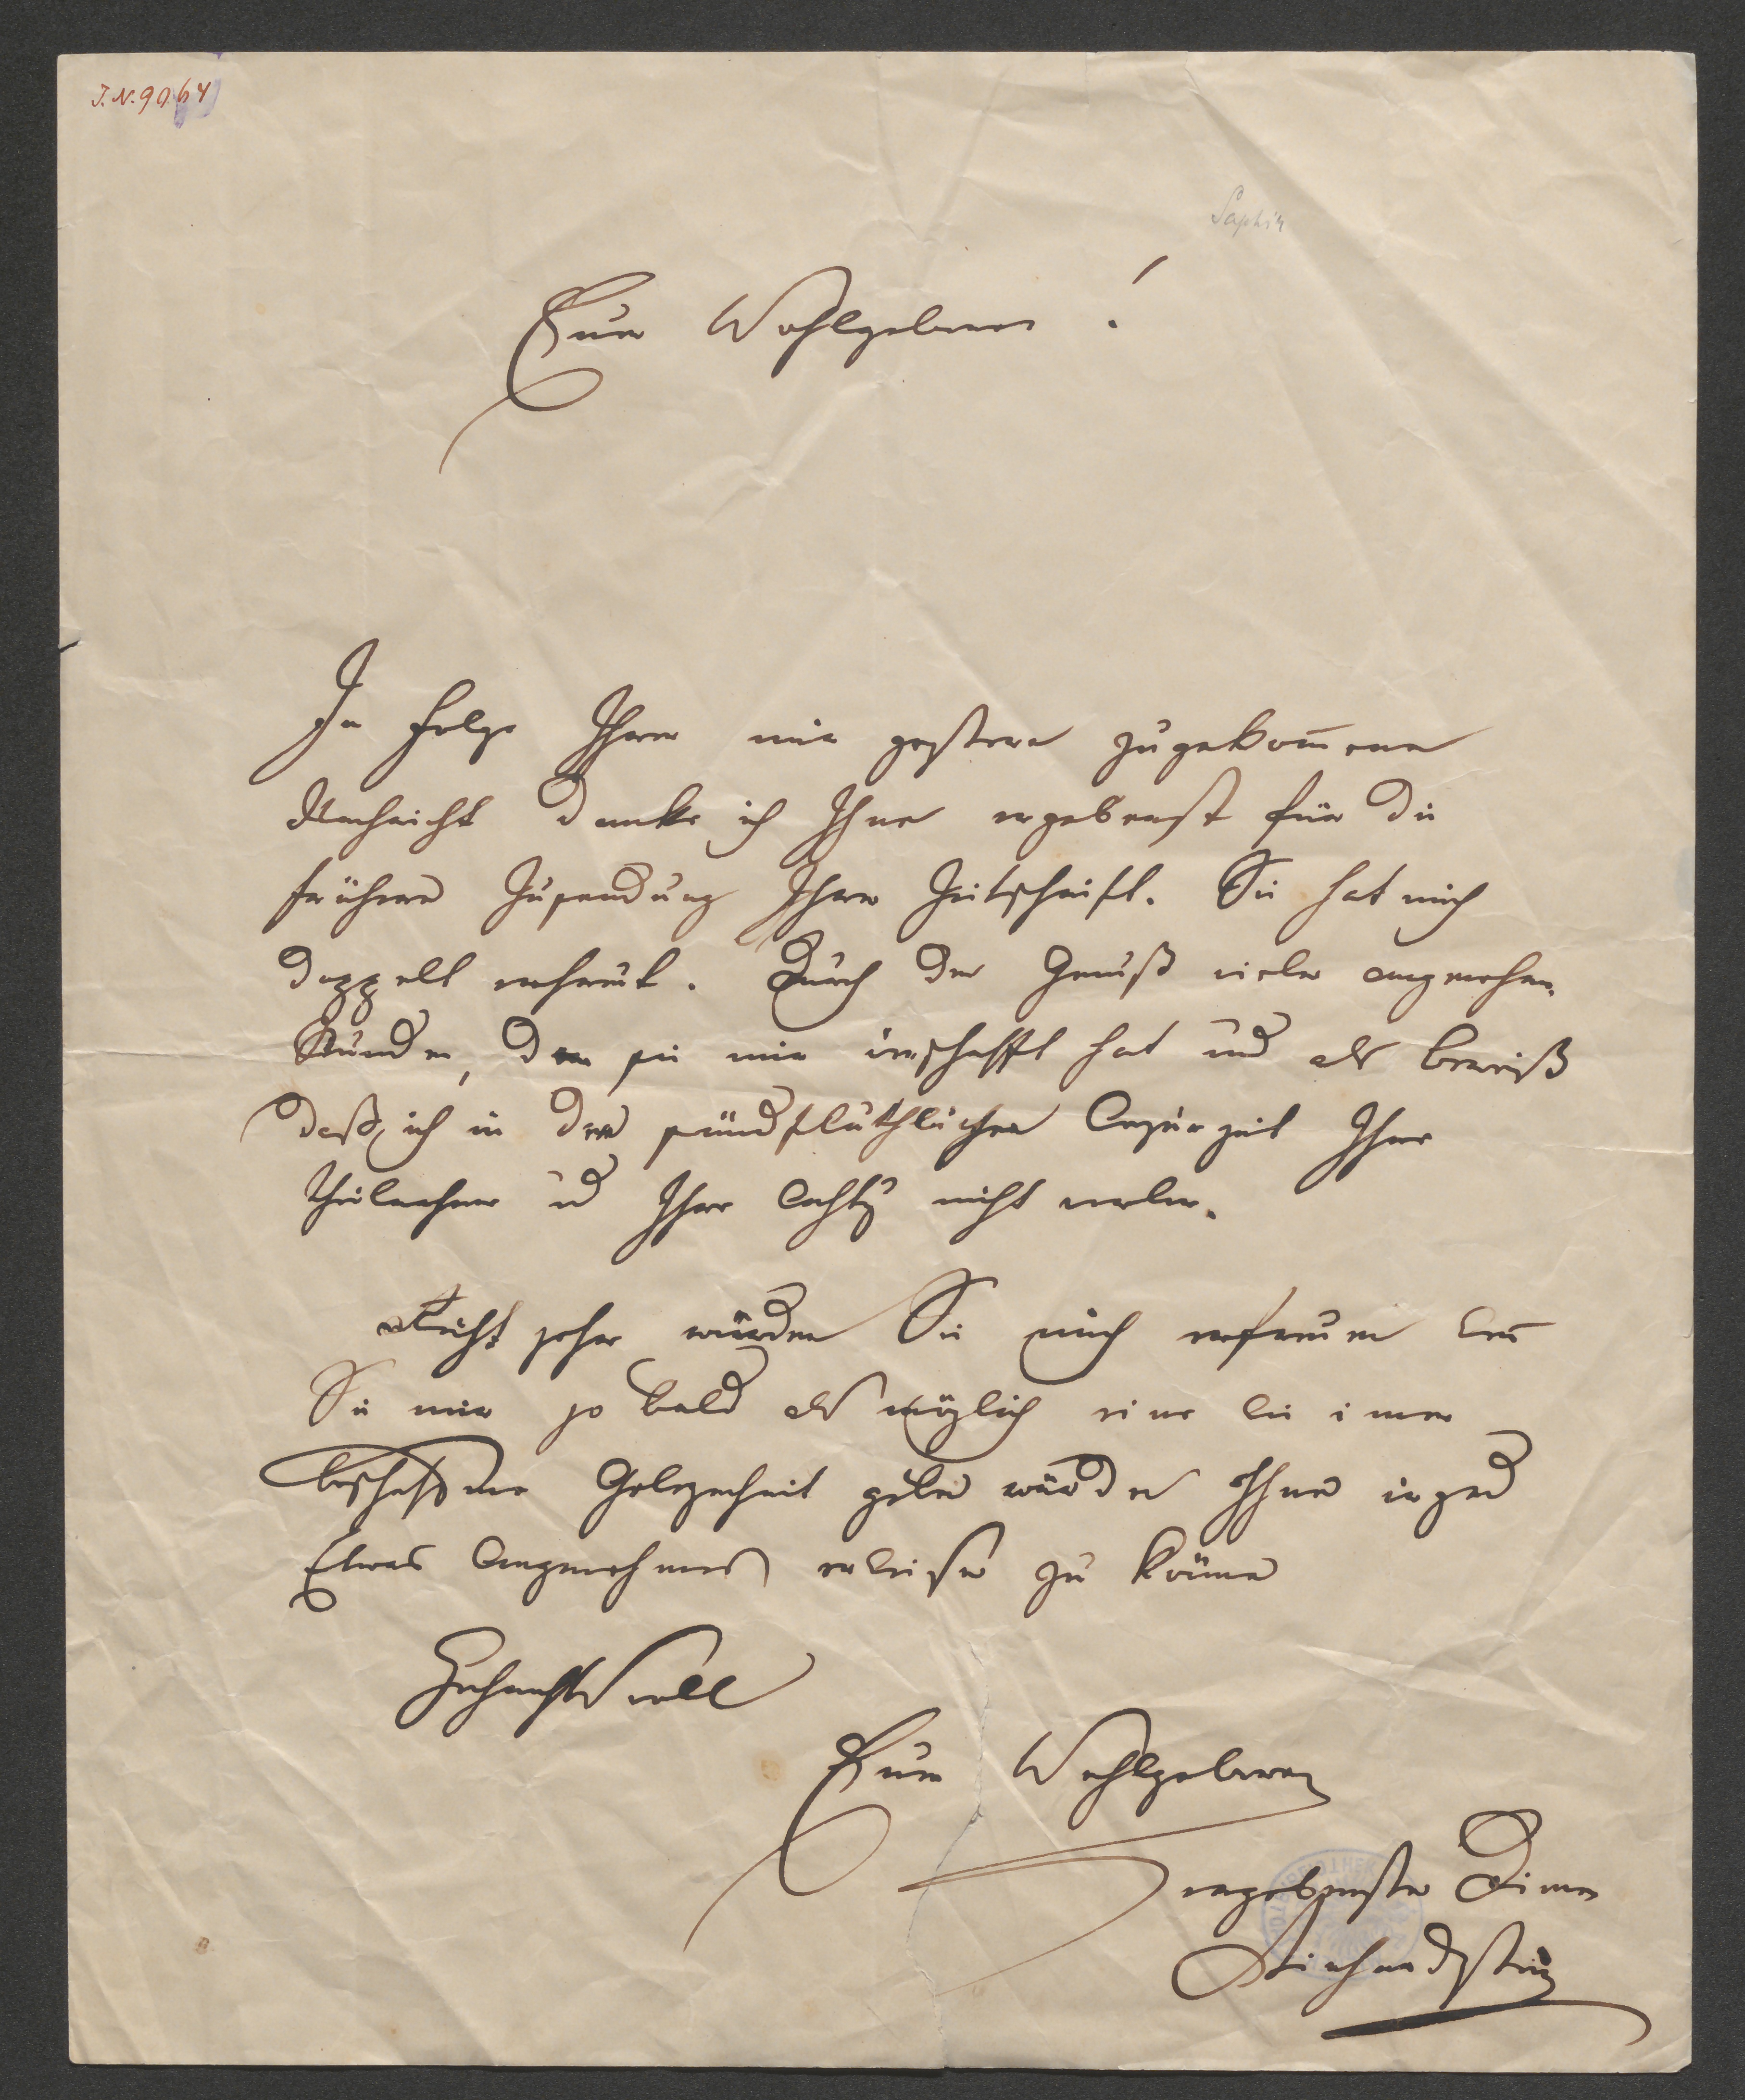 J.N. 9064
Saphir
Euer Wohlgeboren!
In Folge Ihrer mir gestern zugekom̄enen
Nachricht danke ich Ihnen ergebenst für die
frühere Zusendung Ihrer Zeitschrift. Sie hat mich
doppelt erfreut. Durch den Genuß vieler angenehmen
Stunden, den sie mir verschafft hat und als Beweiß
daß ich in der sündfluthlichen Ihre
Theilnahme und Ihre Achtung nicht verlor.
Nicht sehr würden Sie mich erfreuen wen̄
Sie mir so bald als möglich eine wie im̄er
beschaffene Gelegenheit geben würden Ihnen irgend
Etwas Angenehmes erweisen zu kön̄en
Hochachtungsvoll
Euer Wohlgeboren
ergebenster Diener